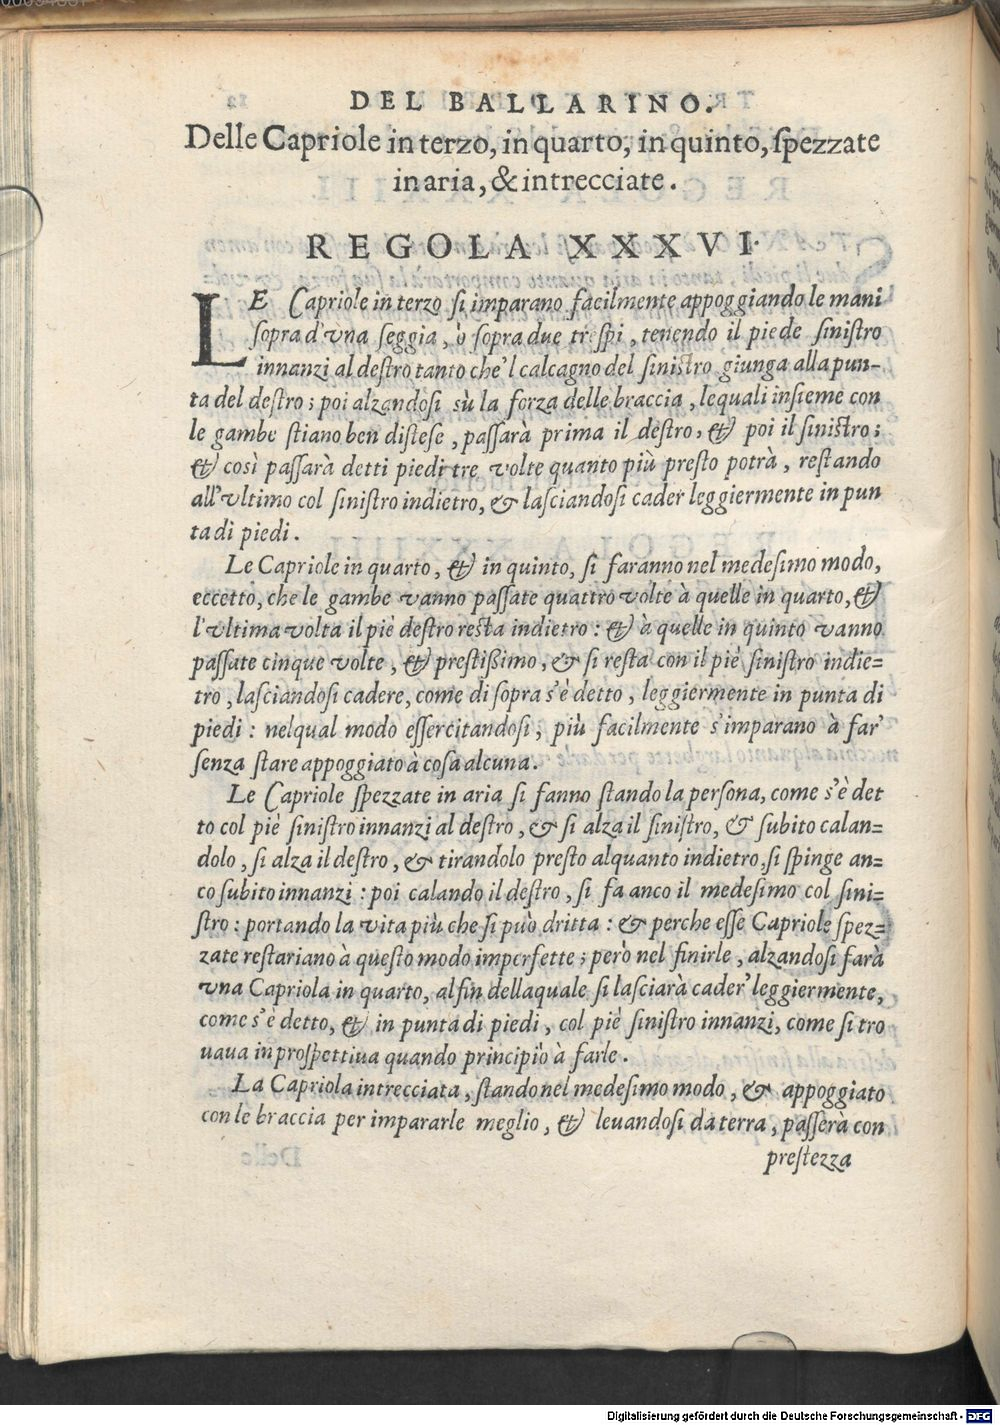 DEL BALLARINO.
Delle Capriole in terzo, in quarto, in quinto, ſpezzate
in aria, & intrecciate.
REGOLA XXXVI.
LE Capriole in terzo ſi imparano facilmente appoggiando le mani
ſopra d'vna ſeggia, ò ſopra due treſpi, tenendo il piede ſiniſtro
innanzi al deſtro tanto che'l calcagno del ſiniſtro giunga alla pun-
ta del deſtro; poi alzandoſi sù la forza delle braccia, lequali inſieme con
le gambe ſtiano ben diſteſe, paſſarà prima il deſtro, & poi il ſiniſtro;
& così paſſarà detti piedi tre volte quanto più preſto potrà, reſtando
all'vltimo col ſiniſtro indietro, & laſciandoſi cader leggiermente in pun
ta di piedi.
Le Capriole in quarto, & in quinto, ſi faranno nel medeſimo modo,
eccetto, che le gambe vanno paſſate quattro volte à quelle in quarto, &
l'vltima volta il piè deſtro reſta indietro: & à quelle in quinto vanno
paſſate cinque volte, & preſtißimo, & ſi reſta con il piè ſiniſtro indie-
tro, laſciandoſi cadere, come di ſopra s'è detto, leggiermente in punta di
piedi: nelqual modo eſſercitandoſi, più facilmente s'imparano à far'
ſenza ſtare appoggiato à coſa alcuna.
Le Capriole ſpezzate in aria ſi fanno ſtando la perſona, come s'è det
to col piè ſiniſtro innanzi al deſtro, & ſi alza il ſiniſtro, & ſubito calan-
dolo, ſi alza il deſtro, & tirandolo preſto alquanto indietro, ſi ſpinge an-
co ſubito innanzi: poi calando il deſtro, ſi fa anco il medeſimo col ſini-
ſtro: portando la vita più che ſi può dritta: & perche eſſe Capriole ſpez-
zate reſtariano à queſto modo imperfette; però nel finirle, alzandoſi farà
vna Capriola in quarto, al fin dellaquale ſi laſciarà cader' leggiermente,
come s'è detto, & in punta di piedi, col piè ſiniſtro innanzi, come ſi tro
uaua in proſpettiua quando principiò à farle.
La Capriola intrecciata, ſtando nel medeſimo modo, & appoggiato
con le braccia per impararle meglio, & leuandoſi da terra, paſſerà con
preſtezza
Digitalisierung gefördert durch die Deutsche Forschungsgemeinschaft - DFG